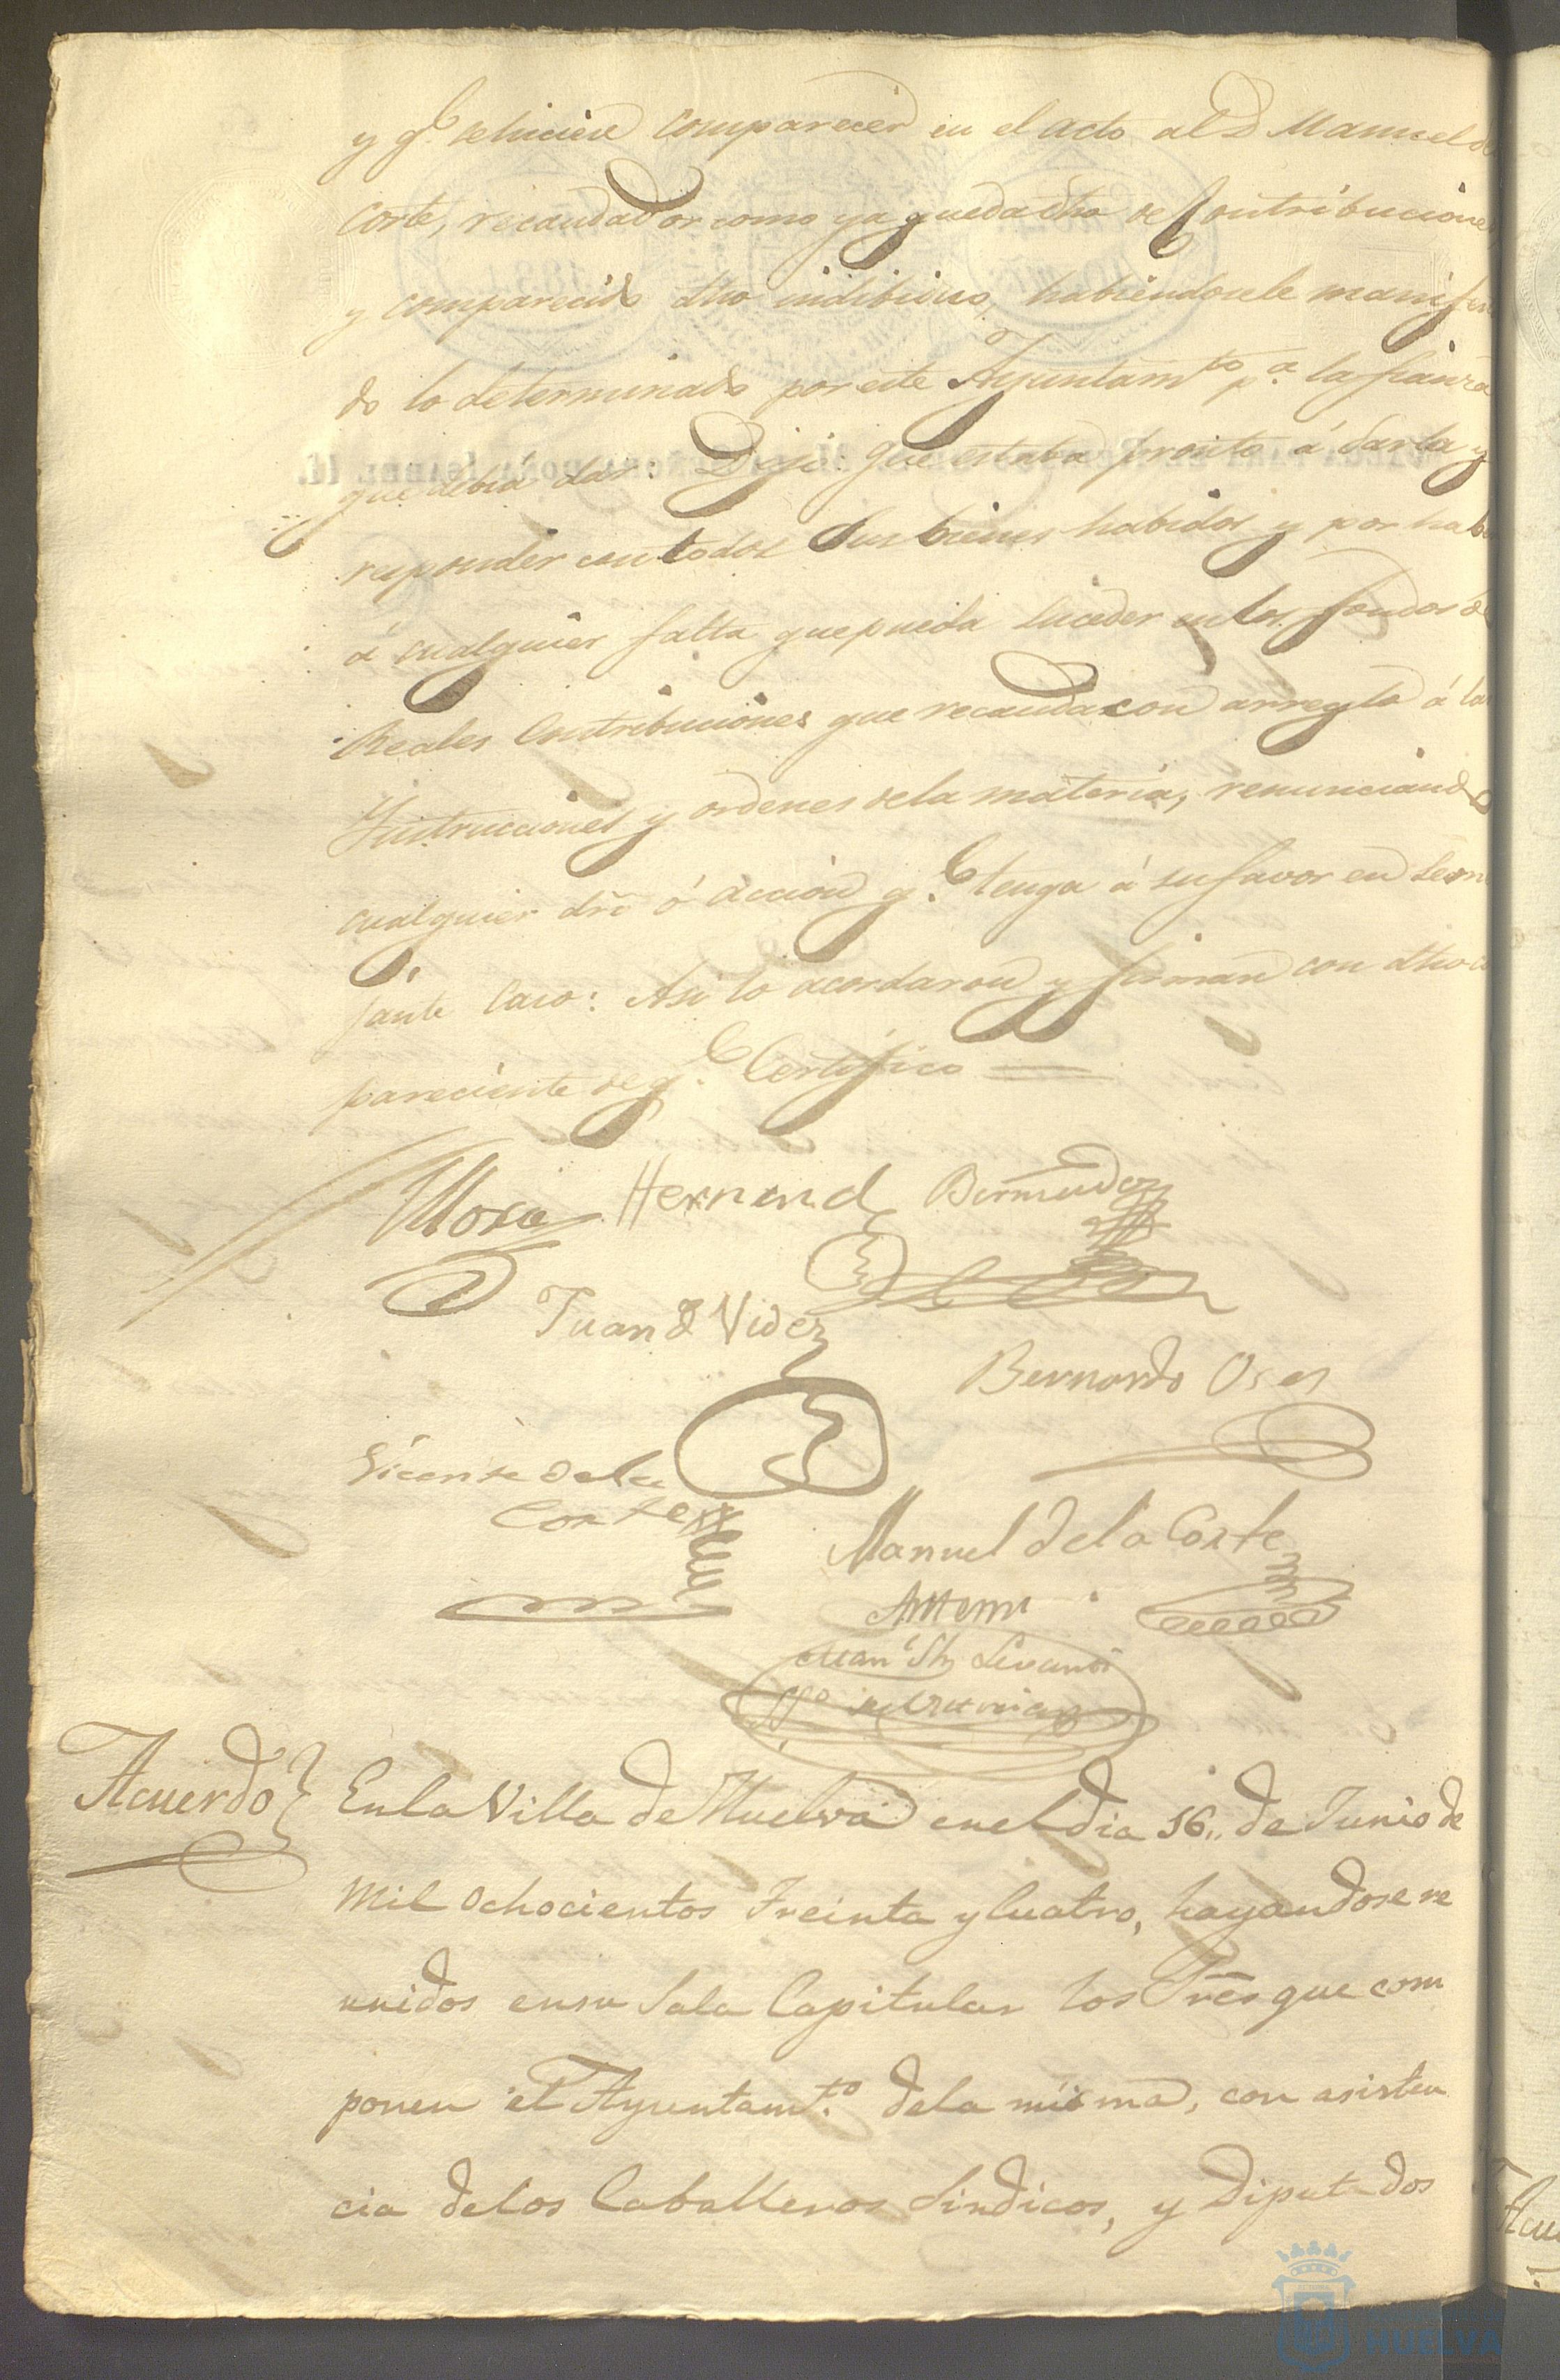 y q.e se hiciere comparecer en el acto al D Manuel de
Corte, recaudador como ya queda dho de Contribuciones
y comparecido dho indibiduo, habiendosele manifesta
do lo determinado por este Ayuntam.to p.a la fianza
que debia dar: Dijo: que estaba pronto á darla y
responder con todos sus bienes habidos y por habe
á cualquier falta que pueda suceder en los fondos de
Reales Contribuciones que recauda con arreglo á las
Instrucciones y ordenes de la materia, renunciando
cualquier dro ó accion q.e tenga á su favor en seme
jante caso: Asi lo acordaron y firman con dho co
pareciente de q.e Certifico
Mora Hernand Bermudez
Juan de Videz
Bernardo Oses
Vicente de la
Corte
Manuel de la Corte
Antemi
SS.no
Acuerdo En la Villa de Huelva en el dia 16,, de Junio de
Mil ochocientos Treinta y Cuatro, hayandose re
unidos en su Sala Capitular los Sres que com
ponen el Ayuntam.to de la misma, con asisten
cia de los Caballeros Sindicos, y Diputados
Acue
HUELVA